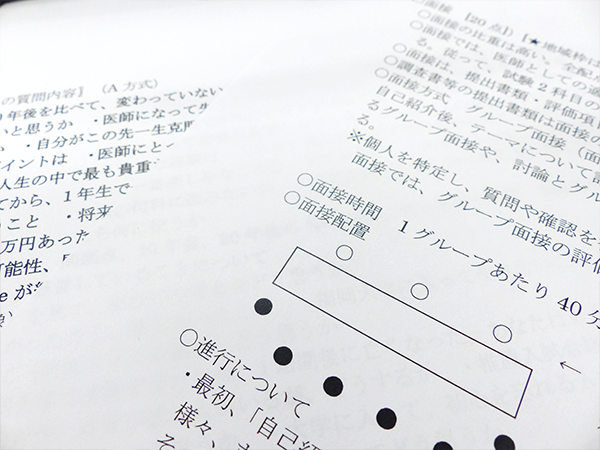 の質問内容】 (A方式)
年後を比べて、変わっていない
いと思うか ・医師になって
・自分がこの先一生克服
ポイントは ・医師にと
人生の中で最も貴重
てから、1年生で
こと ・将来
万円あった
可能性、「
e が
○面接 【20点】【★地域枠は
○面接の比重は高い。全配
○面接では、医師としての適
る。従って、試験2科目の
○調査書等の提出書類・評価項
○面接は、提出書類は面接の
○面接方式 グループ面接(面
自己紹介後、テーマについて討
るグループ面接や、討論とグル
る。
※個人を特定し、質問や確認を
面接では、グループ面接の評価
○面接時間 1グループあたり40分
○面接配置
←
○進行について
・最初、「自己紹
様々、
そ